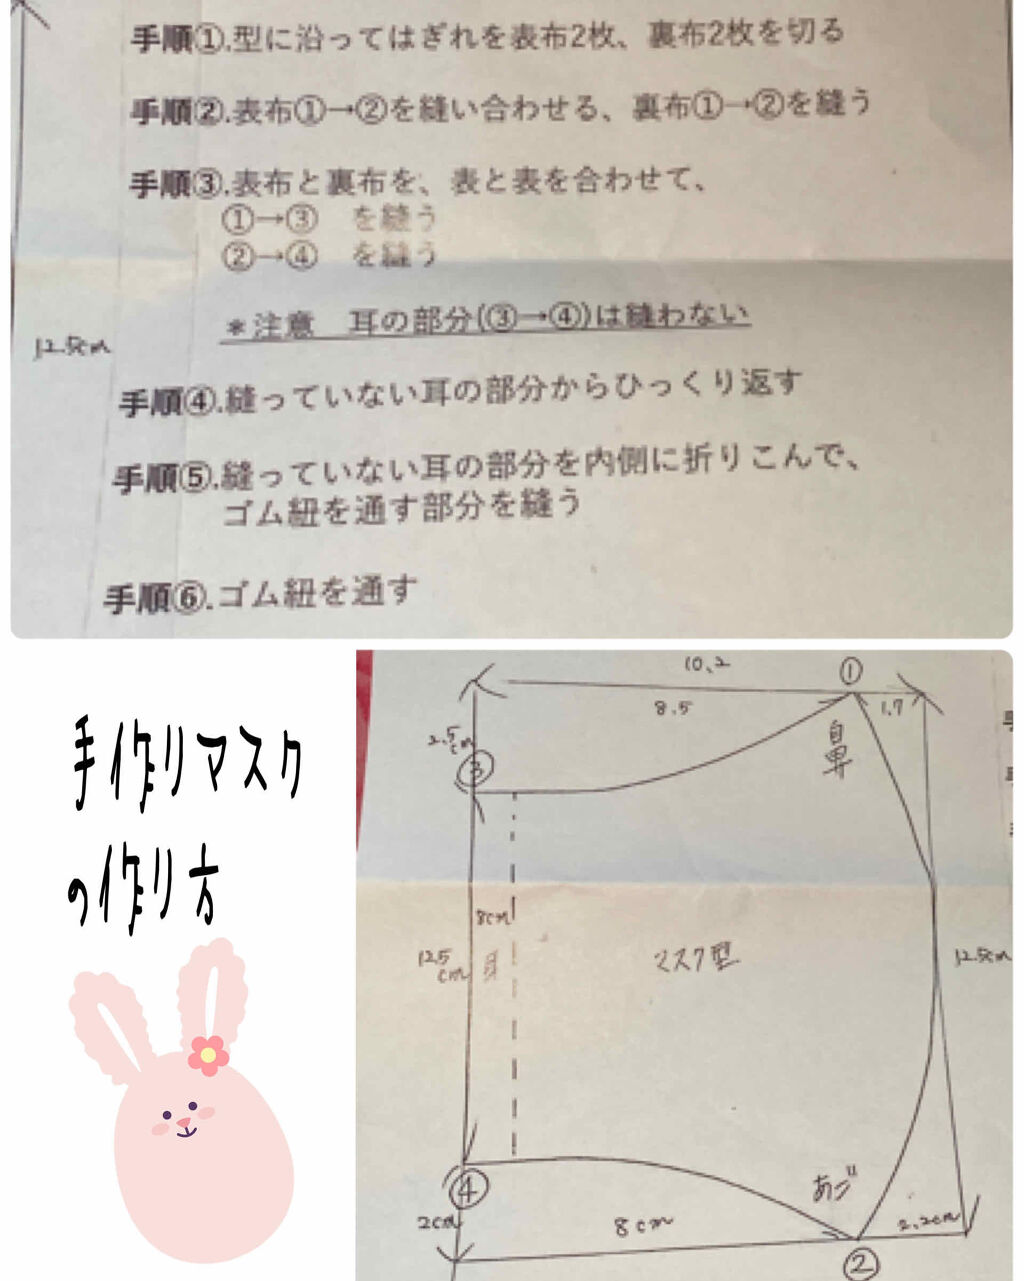 手順①.型に沿ってはぎれを表布2枚、裏布2枚を切る
手順②.表布①→②を縫い合わせる、裏布①→②を縫う
手順③.表布と裏布を、表と表を合わせて、
①→③ を縫う
②→④ を縫う
*注意 耳の部分(③→④)は縫わない
12.5cm
手順④.縫っていない耳の部分からひっくり返す
手順⑤.縫っていない耳の部分を内側に折りこんで、
ゴム紐を通す部分を縫う
手順⑥.ゴム紐を通す
手作りマスク
の作り方
10.2
①
8.5
1.7
2.5cm
鼻
③
8cm
12.5cm
マスク型
12.5cm
④
あご
2cm
8cm
2.2cm
②